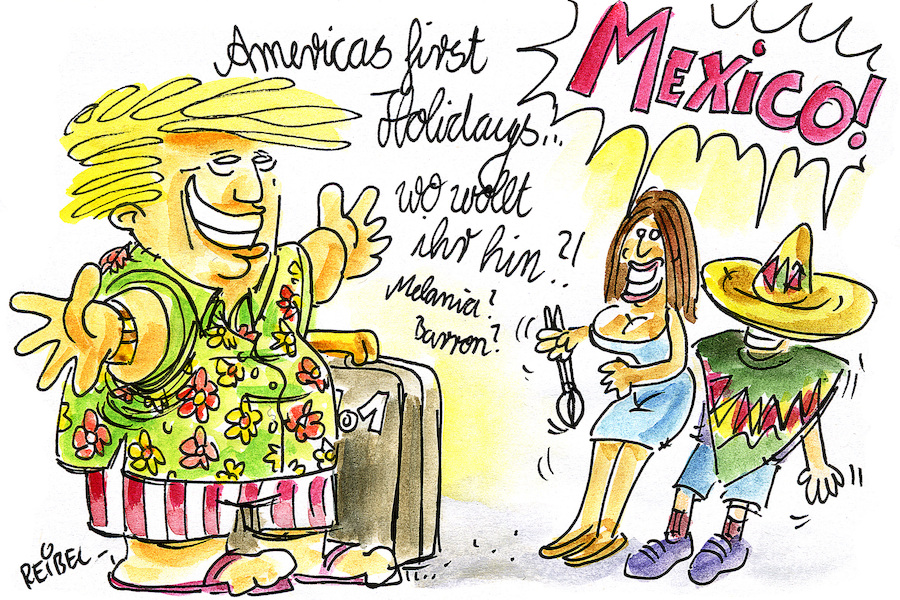 Americas first
Holidays...
wo wollt
ihr hin?!
Melania?
Barron?
MEXICO!
No1
REIBEL